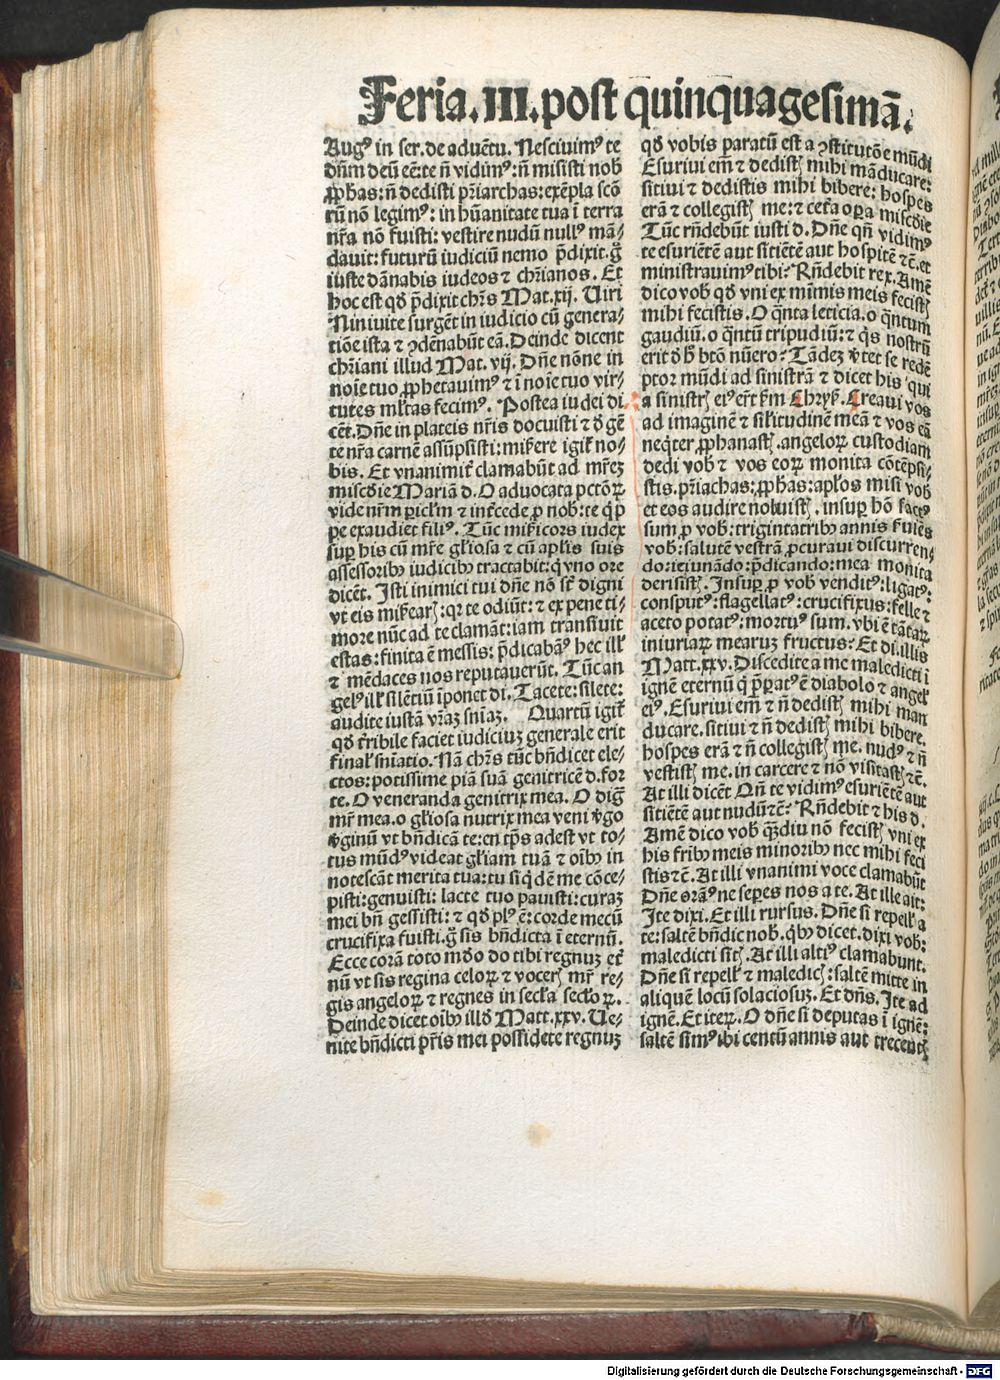 Feria.III.post quīnquagesimā.
Augꝰ in ser.de aduētu. Nesciuimꝰ te
dn̄m deū eē:te n̄ vidimꝰ:n̄ misisti nob̄
ꝓphas:n̄ dedisti pr̄iarchas:exēpla scō
rū nō legimꝰ: in hūanitate tua ī terra
nr̄a nō fuisti: vestire nudū nullꝰ mā⸗
dauit: futurū iudiciū nemo p̄dixit.g̊
iuste dānabis iudeos ⁊ chr̄ianos. Et
hoc est qđ p̄dixit chr̄s Mat.xij. Uiri
Niniuite surgēt in iudicio cū genera⸗
tiōe ista ⁊ ꝯdēnabūt eā. Deinde dicent
chr̄iani illud Mat. vij. Dn̄e nōne in
noīe tuo ꝓphetauimꝰ ⁊ ī noīe tuo vir⸗
tutes ml̄tas fecimꝰ. Postea iudei di
cēt. Dn̄e in plateis nr̄is docuisti ⁊ đ gē
te nr̄a carnē assūpsisti: miẜere igit̄ no⸗
bis. Et vnanimit̄ clamabūt ad mr̄eꝫ
miscđie Mariā d. O aduocata pctōꝝ
vide nr̄m ꝑicl̄m ⁊ int̄cede ꝓ nob̄: te q̄ꝑ
pe exaudiet filiꝰ. Tūc miẜicors iudex
suꝑ his cū mr̄e gl̄iosa ⁊ cū apl̄is suis
assessoribꝰ iudicibꝰ tractabit: q̇ vno ore
dicēt. Isti inimici tui dn̄e nō st̄ digni
vt eis miẜearꝭ: qꝛ te odiūt: ⁊ ex pene ti⸗
more nūc ad te clamāt: iam transiuit
estas: finita ē messis: p̄dicabāꝰ hec ill̄
⁊ mēdaces nos reputauerūt. Tūc an
gelꝰ ill̄ silētiū īponet di. Tacete: silete:
audite iustā vr̄aꝫ sn̄iaꝫ. Quartū igit̄
qđ t̄ribile faciet iudiciuꝫ generale erit
final̄ sn̄iatio. Nā chr̄s tūc bn̄dicet ele⸗
ctos: potissime piā suā genitricē d. for
te. O veneranda genitrix mea. O dig̃
mr̄ mea. o gl̄iosa nutrix mea veni v̊go
v̊ginū vt bn̄dicā te: en tp̄s adest vt to⸗
tus mūdꝰ videat gl̄iam tuā ⁊ oībꝰ in
notescāt merita tua: tu siq̇dē me cōce⸗
pisti: genuisti: lacte tuo pauisti: curaꝫ
mei bn̄ gessisti: ⁊ qđ plꝰ ē: corde mecū
crucifixa fuisti. g̊ sis bn̄dicta ī eternū.
Ecce corā toto mđo do tibi regnuꝫ et̄
nū vt sis regina celoꝝ ⁊ vocerꝭ mr̄ re⸗
gis angeloꝝ ⁊ regnes in secl̄a secl̄oꝝ.
Deinde dicet oībꝰ illđ Matt.xxv. Ue⸗
nite bn̄dicti pr̄is mei possidete regnuꝫ
qđ vobis paratū est a ꝯstitutōe mūdi
Esuriui em̄ ⁊ dedistꝭ mihi māducare:
sitiui ⁊ dedistis mihi bibere: hospes
erā ⁊ collegistꝭ me: ⁊ cet̄a oꝑa miscđie
Tūc rn̄debūt iusti d. Dn̄e qn̄ vidimꝰ
te esuriētē aut sitiētē aut hospitē ⁊c̄. et
ministrauimꝰ tibi? Rn̄debit rex. Amē
dico vob̄ qđ vni ex minimis meis fecistꝭ
mihi fecistis. O q̄nta leticia. o q̄ntum
gaudiū. o q̄ntū tripudiū: ⁊ q̇s nostrū
erit đ h̄ btō nūero? Tādeꝫ v̊tet se redē
ptor mūdi ad sinistrā ⁊ dicet his qui
a sinistrꝭ eiꝰ er̄t ẜm Chryẜ. Creaui vos
ad imaginē ⁊ sil̄itudinē meā ⁊ vos eā
neq̄ter ꝓphanastꝭ. angeloꝝ custodiam
dedi vob̄ ⁊ vos eoꝝ monita cōtēpsi⸗
stis. pr̄iachas: ꝓphas: apl̄os misi vob̄
et eos audire noluistꝭ. insuꝑ hō factꝰ
sum ꝓ vob̄: trigintatribꝰ annis fui es
vob̄: salutē vestrā ꝓcuraui discurren⸗
do: ieiunādo: p̄dicando: mea monita
derisistꝭ. Insuꝑ ꝓ vob̄ venditꝰ: ligatꝰ:
consputꝰ: flagellatꝰ: crucifixus: felle ⁊
aceto potatꝰ: mortuꝰ sum. vbi ē tātaꝝ
iniuriaꝝ mearuꝫ fructus? Et di. illis
Matt.xxv. Discedite a me maledicti ī
ignē eternū q̇ p̄ꝑatꝰ ē diabolo ⁊ angel̄
eiꝰ. Esuriui em̄ ⁊ n̄ dedistꝭ mihi man
ducare. sitiui ⁊ n̄ dedistꝭ mihi bibere.
hospes erā ⁊ n̄ collegistꝭ me. nudꝰ ⁊ n̄
vestistꝭ me. in carcere ⁊ nō visitastꝭ ⁊c̄.
At illi dicēt Qn̄ te vidimꝰ esuriētē aut
sitiētē aut nudū ⁊c̄? Rn̄debit ⁊ his d.
Amē dico vob̄ qꝫdiu nō fecistꝭ vni ex
his fribꝰ meis minoribꝰ nec mihi feci
stis ⁊c̄. At illi vnanimi voce clamabūt
Dn̄e orāꝰ ne seꝑes nos a te. At ille ait:
Ite dixi. Et illi rursus. Dn̄e si repell̄ a
te: saltē bn̄dic nob̄. qꝰ dicet. dixi vob̄:
maledicti sitꝭ. At illi altiꝰ clamabunt.
Dn̄e si repell̄ ⁊ maledicꝭ: saltē mitte in
aliquē locū solaciosuꝫ. Et dn̄s. Ite ad
ignē. Et iteꝝ. O dn̄e si deputas ī ignē:
saltē simꝰ ibi centū annis aut trecentꝭ
Digitalisierung gefördert durch die Deutsche Forschungsgemeinschaft - DFG